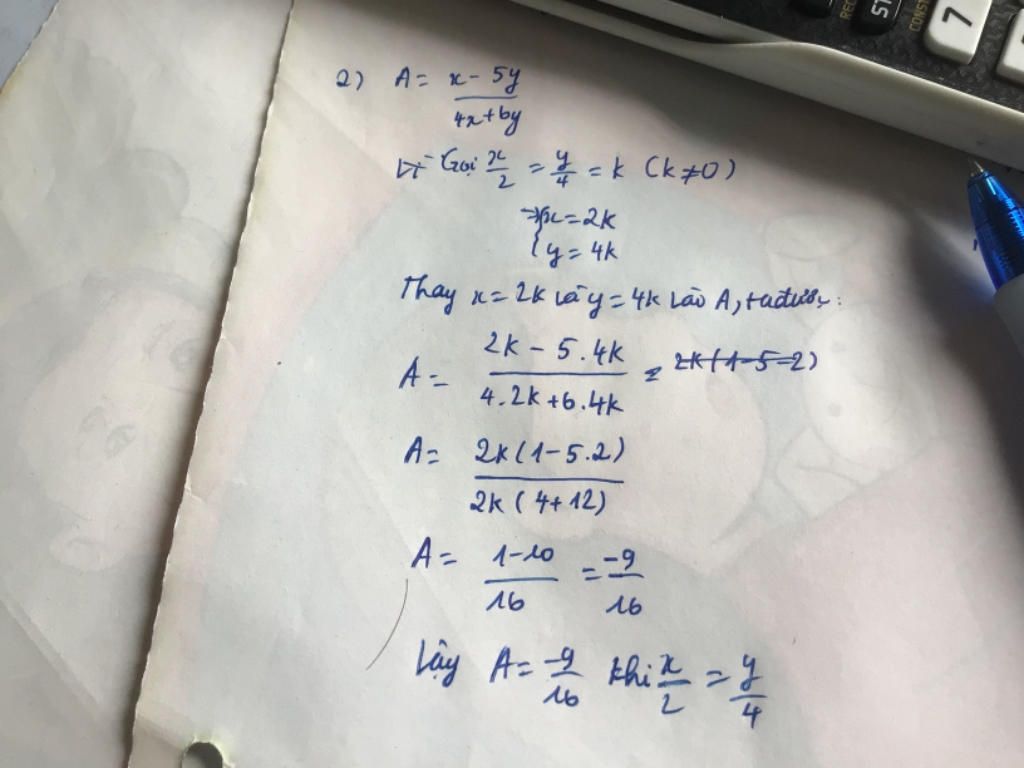 RE ST CONST 7
2) A = x - 5y / 4x + 6y
Gọi x/2 = y/4 = k (k ≠ 0)
⇒ { x = 2k
{ y = 4k
Thay x = 2k và y = 4k vào A, ta được:
A = 2k - 5.4k / 4.2k + 6.4k = 2k(1-5-2)
A = 2k(1-5.2) / 2k(4+12)
A = 1-10 / 16 = -9 / 16
Vậy A = -9/16 khi x/2 = y/4